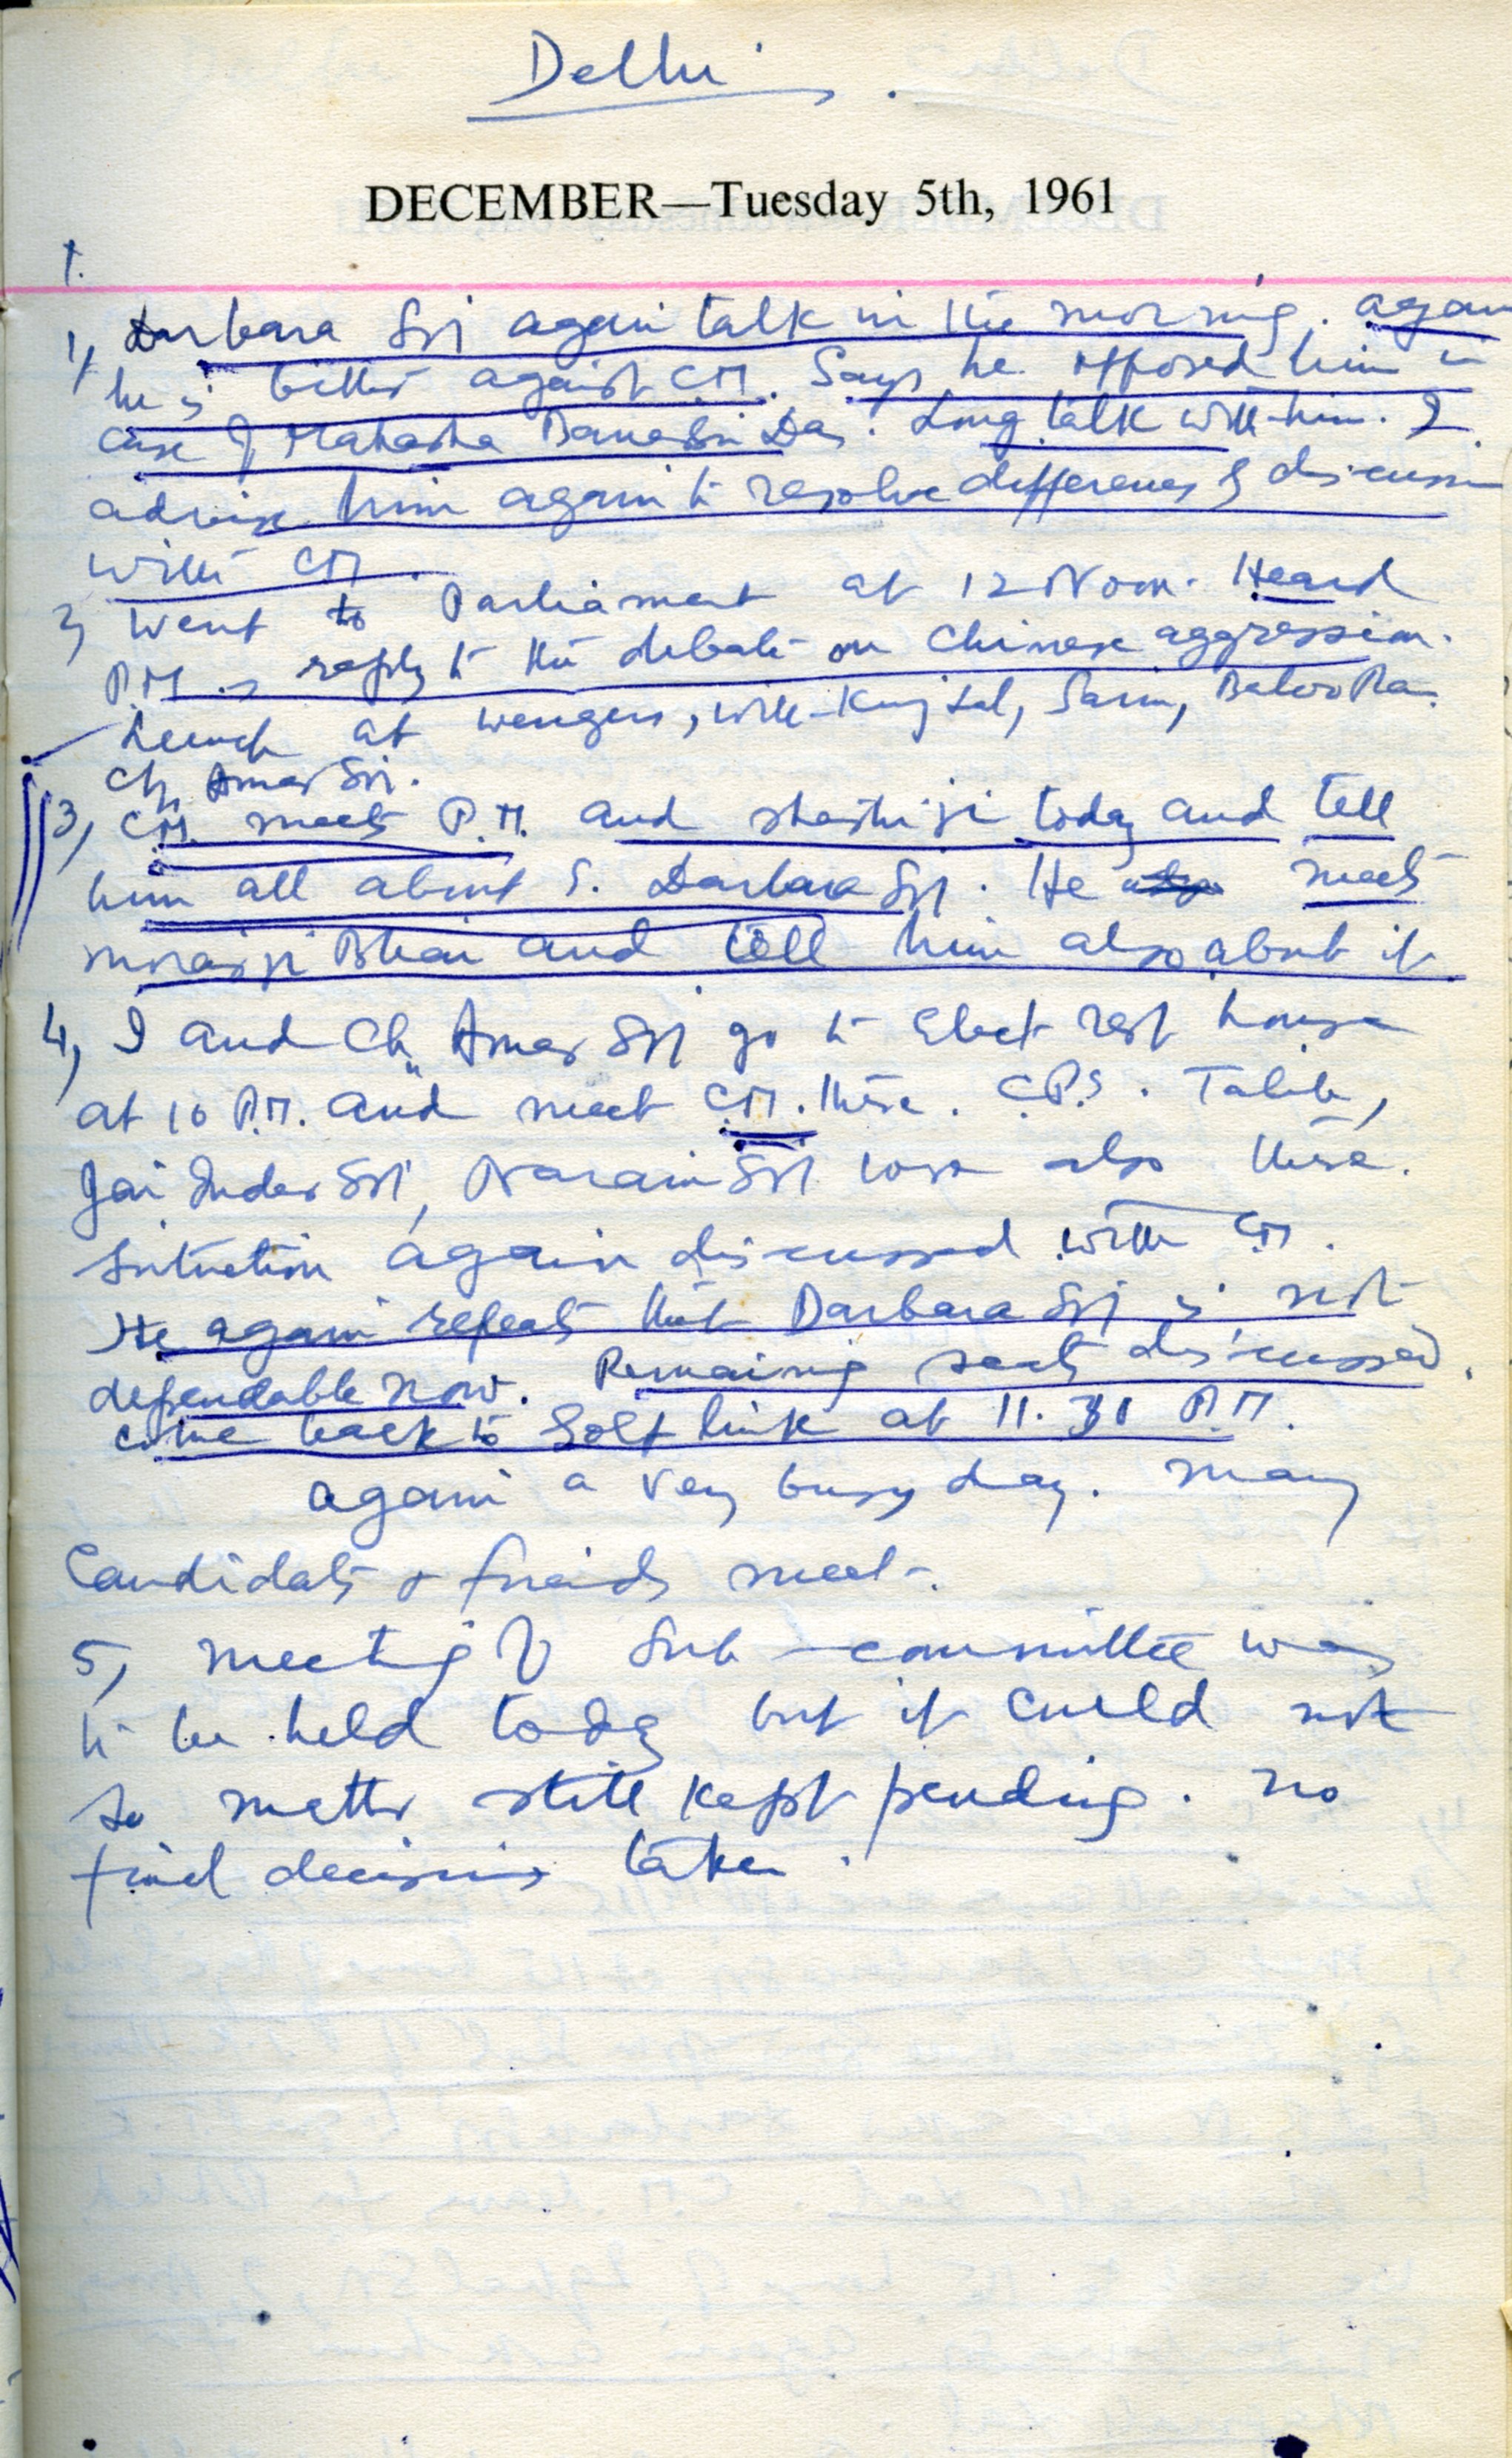 Delhi
DECEMBER—Tuesday 5th, 1961
1.
1, Darbara Sn again talk in the morning. again
he is bitter against C.M. Says he opposed him in
case of Mahasha Banarsi Das. Long talk with him. I
advise him again to resolve differences by discussion
with CM.
2, Went to Parliament at 12 Noon. Heard
P.M. 's reply to the debate on Chinese aggression.
Lunch at wengers, with Sarin,
Ch. Amar Sn.
3, C.M. meets P.M. and shastri ji today and tell
him all about S. Darbara Sn. He meets
morarji Bhai and tell him also about it
4, I and Ch. Amar Sn go to Elect rest house
at 10 P.M. and meet C.M. there. C.P.S. Talib,
Jai Inder Sn, Narain Sn were also there.
Situation again discussed with CM.
He again repeats that Darbara Sn is not
dependable now. Remaing seats discussed.
come back to Golf link at 11.30 P.M.
again a very busy day. many
Candidats & friends meet.
5, meeting of Sub-committee was
to be held today but it could not
so matter still kept pending. no
final decision taken.